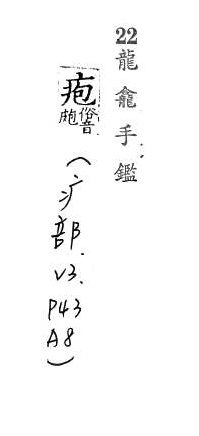 22龍龕手鑑
疱俗音皰
(疒部.v3.P43A8)